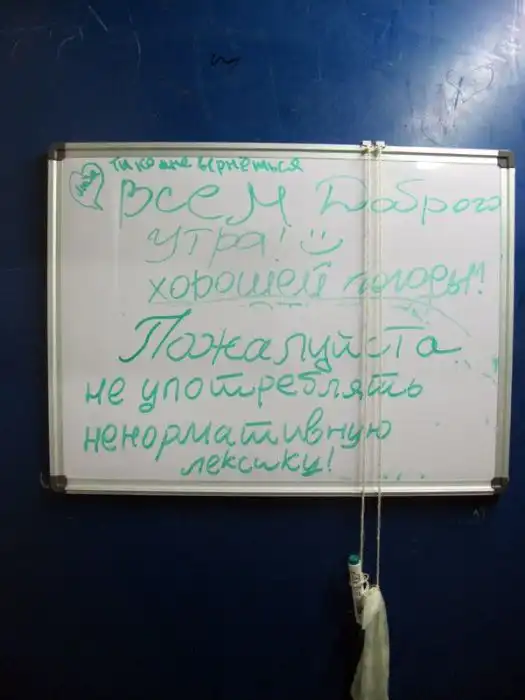 ты ко мне вернёшься
Всем Доброго
утра!
хорошей погоды!!
Пожалуйста
не употреблять
ненормативную
лексику!